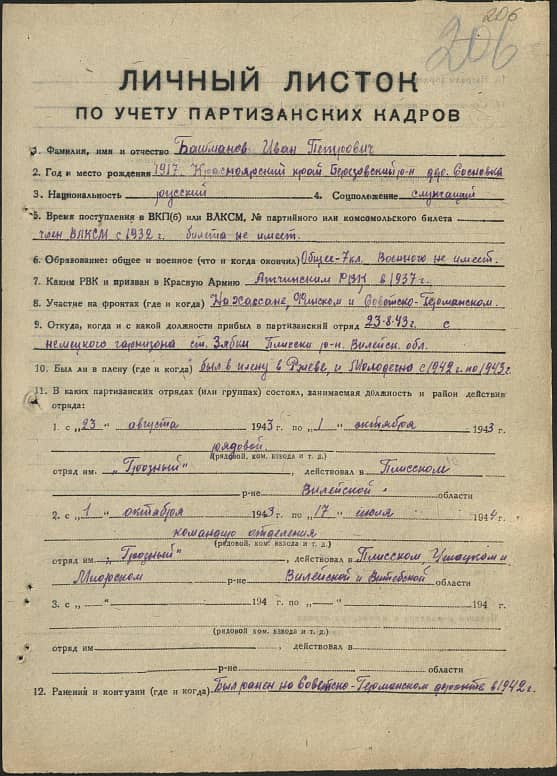 206
206
ЛИЧНЫЙ ЛИСТОК
ПО УЧЕТУ ПАРТИЗАНСКИХ КАДРОВ
1. Фамилия, имя и отчество Башманов Иван Петрович
2. Год и место рождения 1917. Красноярский край Березовский р-н дер. Сосновка
3. Национальность русский 4. Соцположение служащий
5. Время поступления в ВКП(б) или ВЛКСМ, № партийного или комсомольского билета
член ВЛКСМ с 1932 г. билета не имеет.
6. Образование: общее и военное (что и когда окончил) Общее-7кл. Военного не имеет.
7. Каким РВК и призван в Красную Армию Ачинским РВК в 1937 г.
8. Участие на фронтах (где и когда) На Хассане, Финском и Советско-Германском.
9. Откуда, когда и с какой должности прибыл в партизанский отряд 23-8-43 г. с
немецкого гарнизона ст. Зябки Плисски р-н. Вилейск. обл.
10. Был ли в плену (где и когда) был в плену в Ржеве, и Молодечно с 1942 г. по 1943 г.
11. В каких партизанских отрядах (или группах) состоял, занимаемая должность и район действия
отряда:
1. с „23“ августа 1943 г. по „1“ октября 1943 г.
рядовой
(рядовой, ком. взвода и т. д.)
отряд им. „Грозный“, действовал в Плисском
р-не Вилейской области
2. с „1“ октября 1943 г. по „17“ июля 1944 г.
командир отделения
(рядовой, ком. взвода и т. д.)
отряд им. „Грозный“, действовал в Плисском, Ушацком и
Миорском р-не Вилейской и Витебской области
3. с „ “ 194 г. по „ “ 194 г.
(рядовой ком. взвода и т. д.)
отряд им. , действовал в
р-не области
12. Ранения и контузии (где и когда) Был ранен на Советско-Германском фронте в 1942 г.